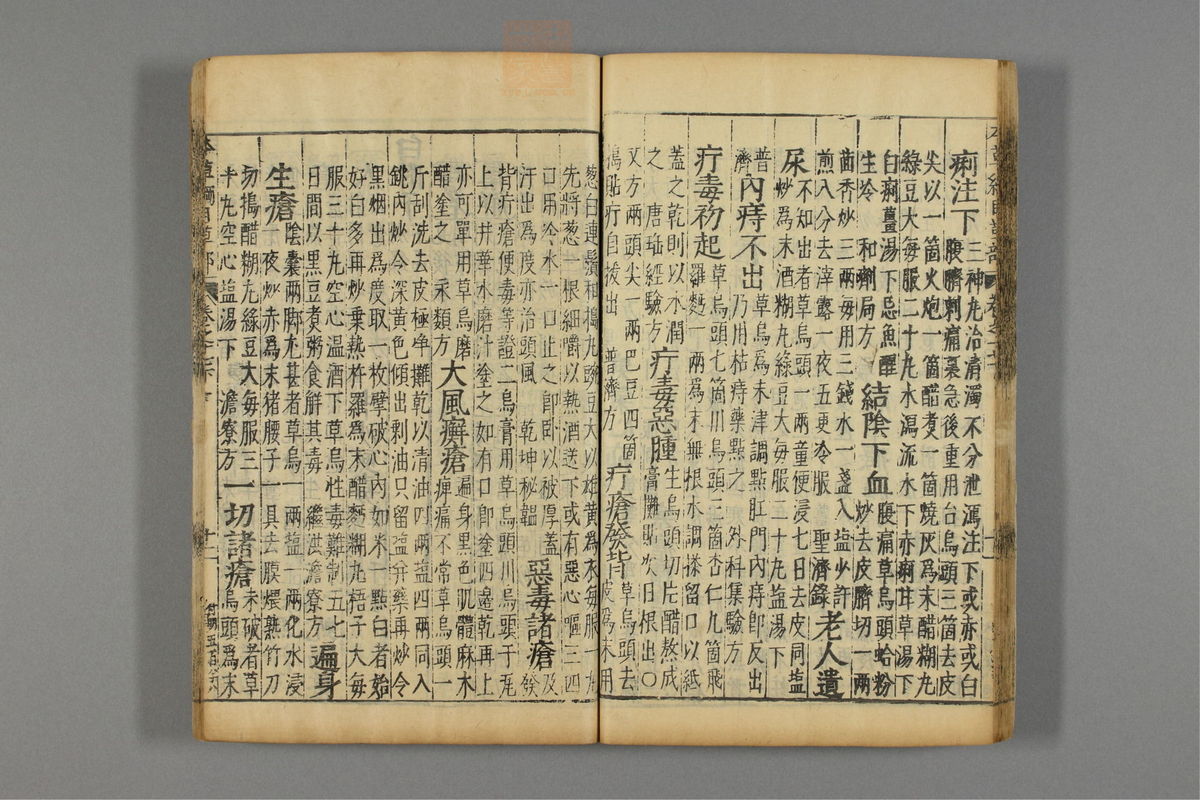 痢注下三神丸治清濁不分泄瀉注下或赤或白
腹臍刺痛裏急後重用台烏頭三箇去皮
尖以一箇火炮一箇醋煑一箇燒灰爲末醋糊丸
綠豆大每服二十丸水瀉流水下赤痢甘草湯下
白痢薑湯下忌魚腥
生冷 和劑局方 結陰下血腹痛草烏頭蛤粉
炒去皮臍切一兩
茴香炒三兩每用三錢水一盞入塩少許
煎八分去滓露一夜五更冷服 聖濟錄 老人遺
尿不知出者草烏頭一兩童便浸七日去皮同塩
炒爲末酒糊丸綠豆大每服二十丸塩湯下
普濟 內痔不出草烏爲末津調點肛門內痔即反出
乃用枯痔藥點之 外科集驗方
疔毒初起草烏頭七箇川烏頭三箇杏仁九箇飛
羅麪一兩爲末無根水調搽留口以紙
蓋之乾則以水潤
之 唐瑶經驗方 疔毒惡腫生烏頭切片醋熬成
膏攤貼次日根出○
又方兩頭尖一兩巴豆四箇
搗貼疔自拔出 普濟方 疔瘡發背草烏頭去
皮爲末用
葱白連鬚和搗丸豌豆大以雄黃爲衣每服一丸
先將葱一根細嚼以熱酒送下或有惡心嘔三四
口用冷水一口止之即卧以被厚蓋
汗出爲度亦治頭風 乾坤秘韞 惡毒諸瘡及
發
背疔瘡便毒等證二烏膏用草烏頭川烏頭于瓦
上以井華水磨汁塗之如有口即塗四邊乾再上
亦可單用草烏磨
醋塗之 永類方 大風癬瘡遍身黑色肌體麻木
痺痛不常草烏頭一
斤刮洗去皮極淨攤乾以清油四兩塩四兩同入
銚內炒令深黃色傾出剩油只留塩并藥再炒令
黑烟出爲度取一枚擘破心內如米一點白者始
好白多再炒乗熱杵羅爲末醋麪糊丸梧子大每
服三十丸空心温酒下草烏性毒難制五七
日間以黑豆煑粥食解其毒 繼洪澹寮方 遍身
生瘡陰囊兩脚尤甚者草烏一兩塩一兩化水浸
一夜炒赤爲末猪腰子一具去膜煨熟竹刀
切搗醋糊丸綠豆大每服三
十丸空心塩湯下 澹寮方 一切諸瘡未破者草
烏頭爲末